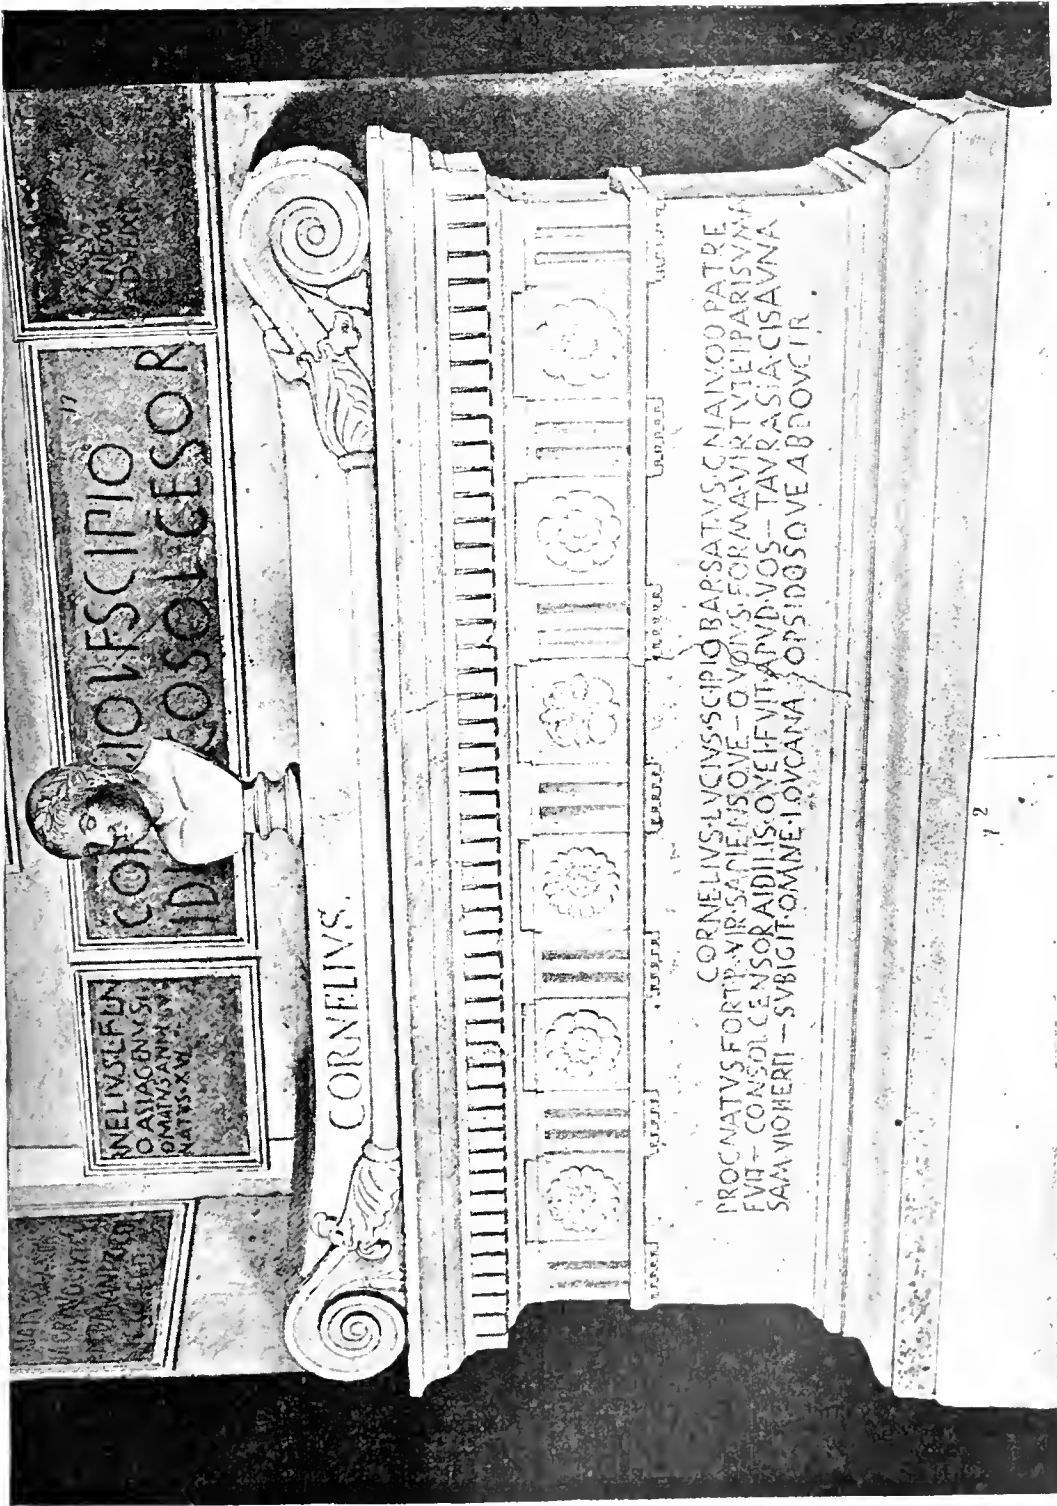 RNELIVS·L·F·L·N
O ASIAGENVS
NATVS·XVI
COR IO·L·F·SCIPIO
IDI COSOL CESOR
CORNELIVS.
CORNELIVS·LVCIVS·SCIPIO BARSATVS·CNAIVOD PATRE
PROCNATVS FORTIS VIR SAPIENSQVE—QVOIVS·FORMA·VIRTVTEI PARISVMA
FVIT—CONSOL CENSOR AIDILIS·QVEI·FVIT APVD·VOS—TAVRASIA·CISAVNA
—SVBIGIT OMNE LOVCANA OPSIDOSQVE ABDOVCIT
72